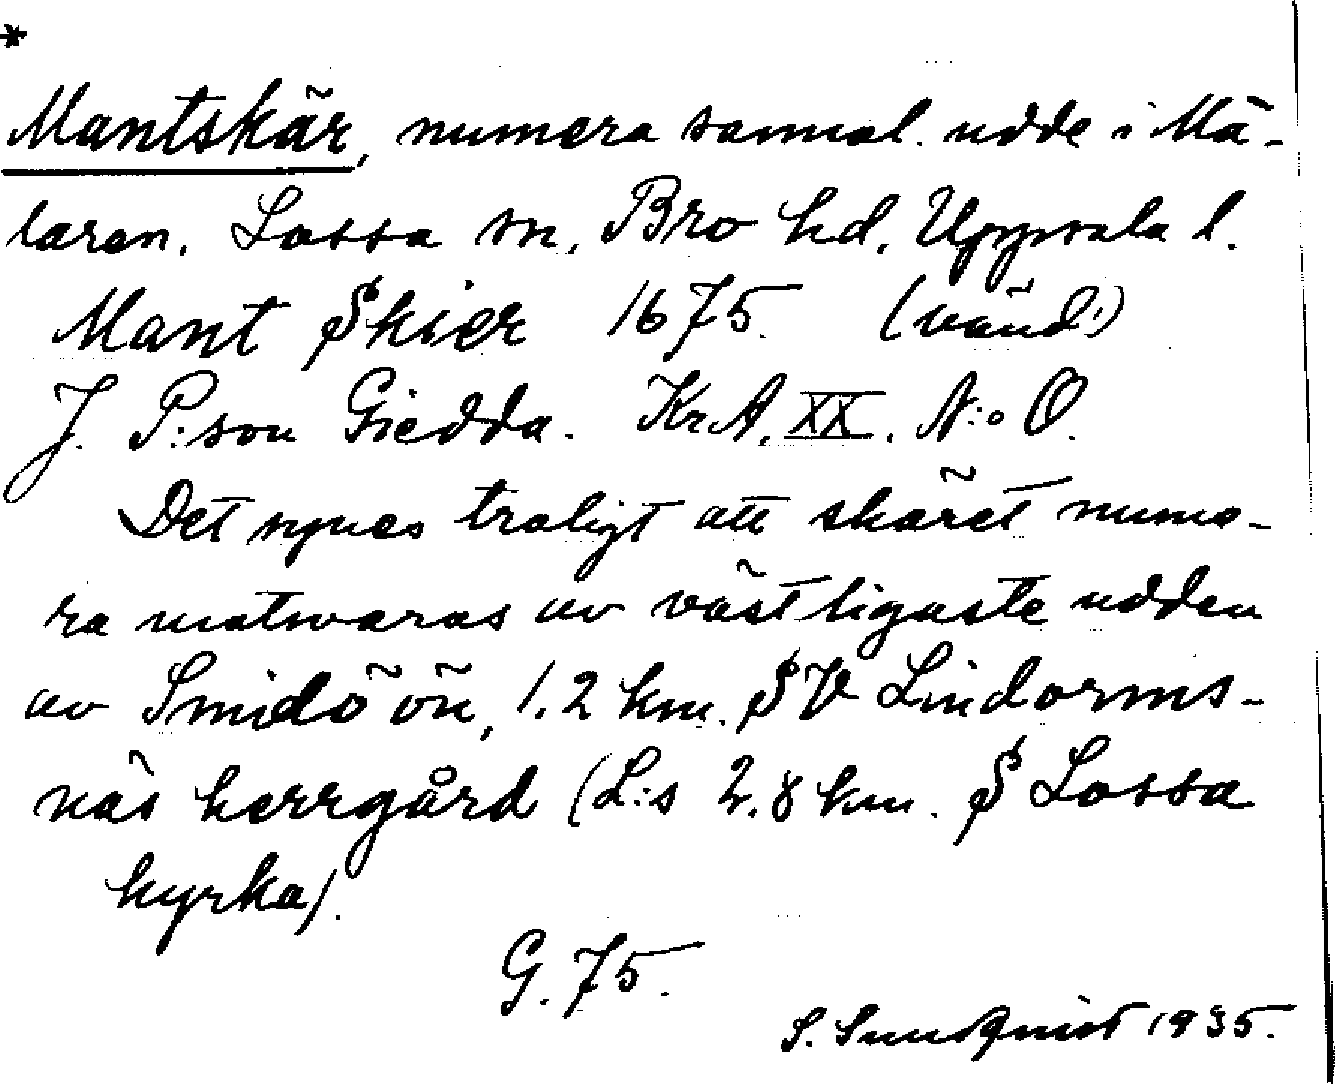 *
Mantskär, numera sannol. udde i Mä-
laren. Lossa sn, Bro hd. Uppsala l.
Mant Skier 1675. (vänd!)
J. P:son Giedda. KrA. XX. N:o O.
Det synes troligt att skäret nume-
ra motsvaras av västligaste udden
av Smidöön, 1.2 km. SV Lindorms-
näs herrgård (L:s 2.8 km. S Lossa
kyrka).
G. 75.
S. Sundqvist 1935.